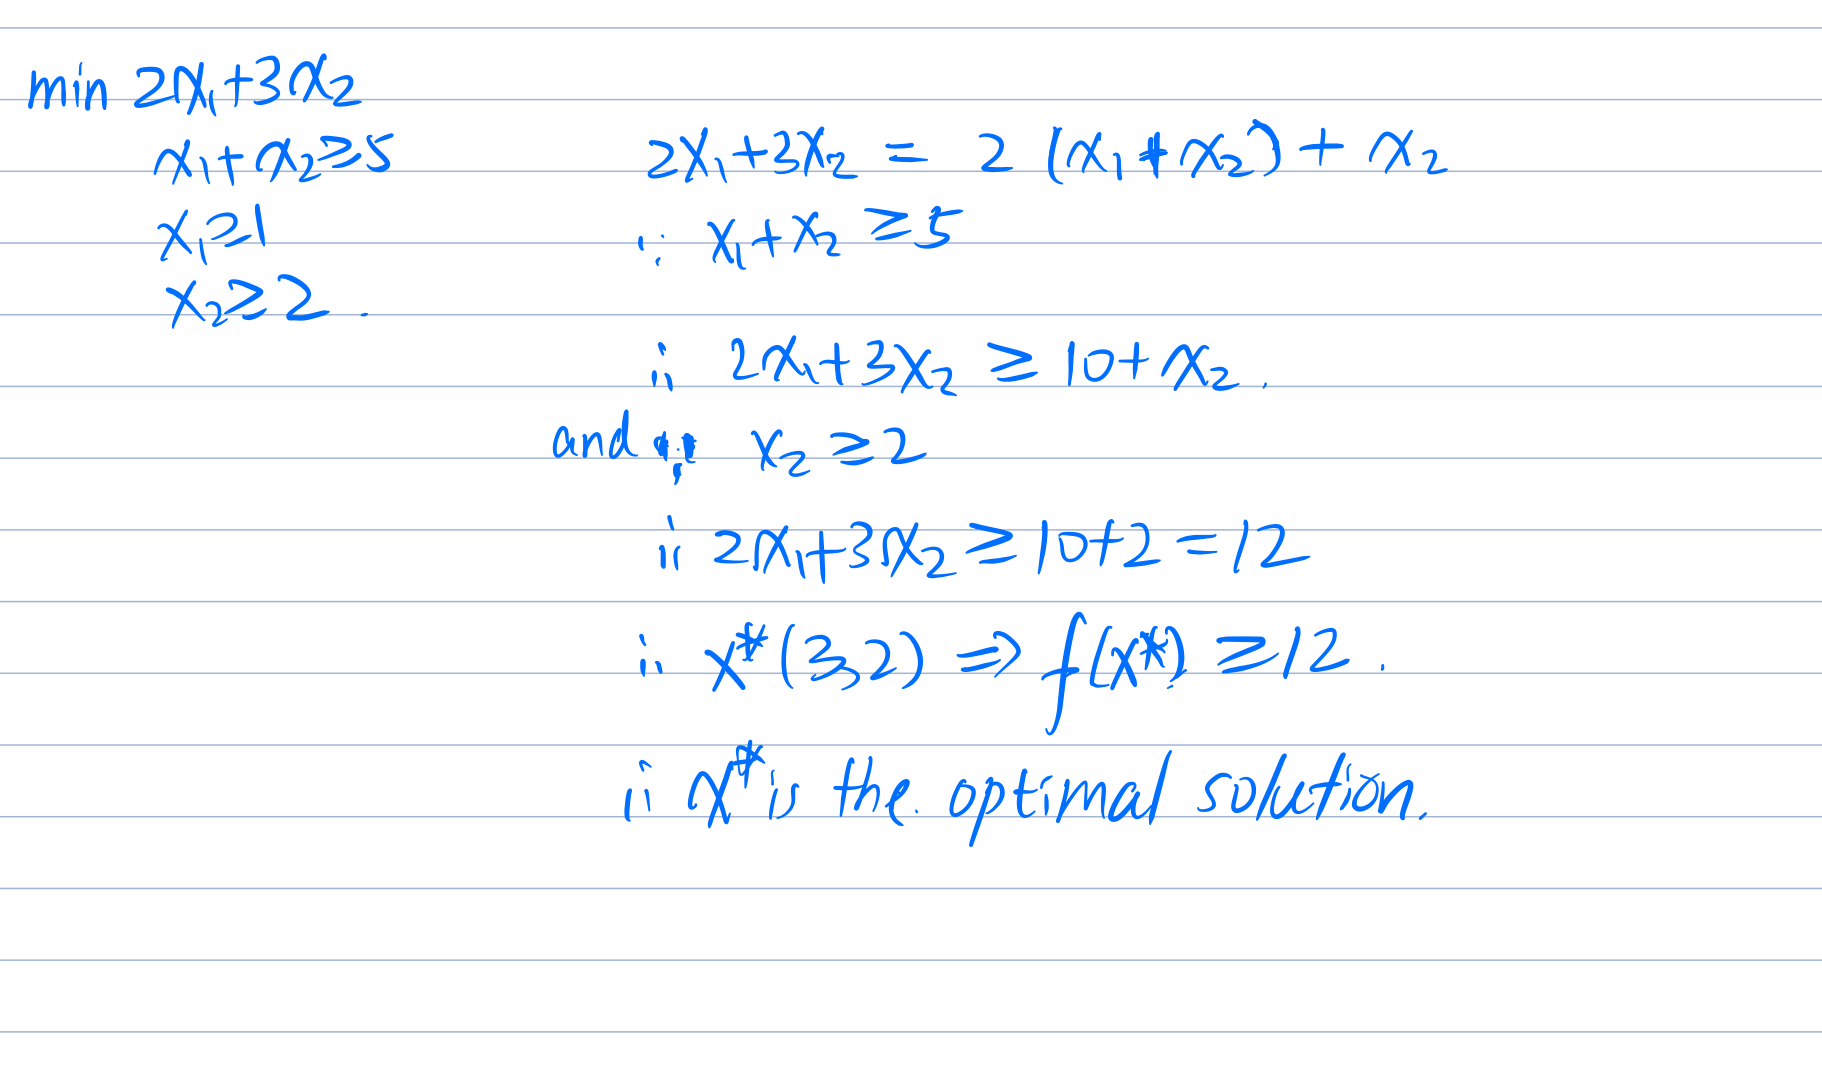 min 2x₁+3x₂
x₁+x₂≥5
x₁≥1
x₂≥2.
2x₁+3x₂ = 2(x₁+x₂)+x₂
∵ x₁+x₂≥5
∴ 2x₁+3x₂ ≥ 10+x₂.
and ∵ x₂≥2
∴ 2x₁+3x₂≥10+2=12
∴ x*(3,2) ⇒ f(x*) ≥12.
∴ x* is the optimal solution.